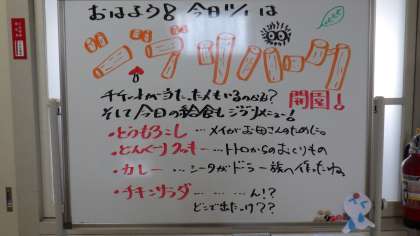 おはよう! 今日11/1は
ジブリパーク
チケットが当たった人もいるのかな? 開園!
そして今日の給食もジブリメニュー!
・とうもろこし …メイがお母さんのために。
・どんぐりクッキー …トトロからのおくりもの
・カレー …シータがドーラ一族へ作ったね。
・チキンサラダ ………ん!?
どこで出たっけ??